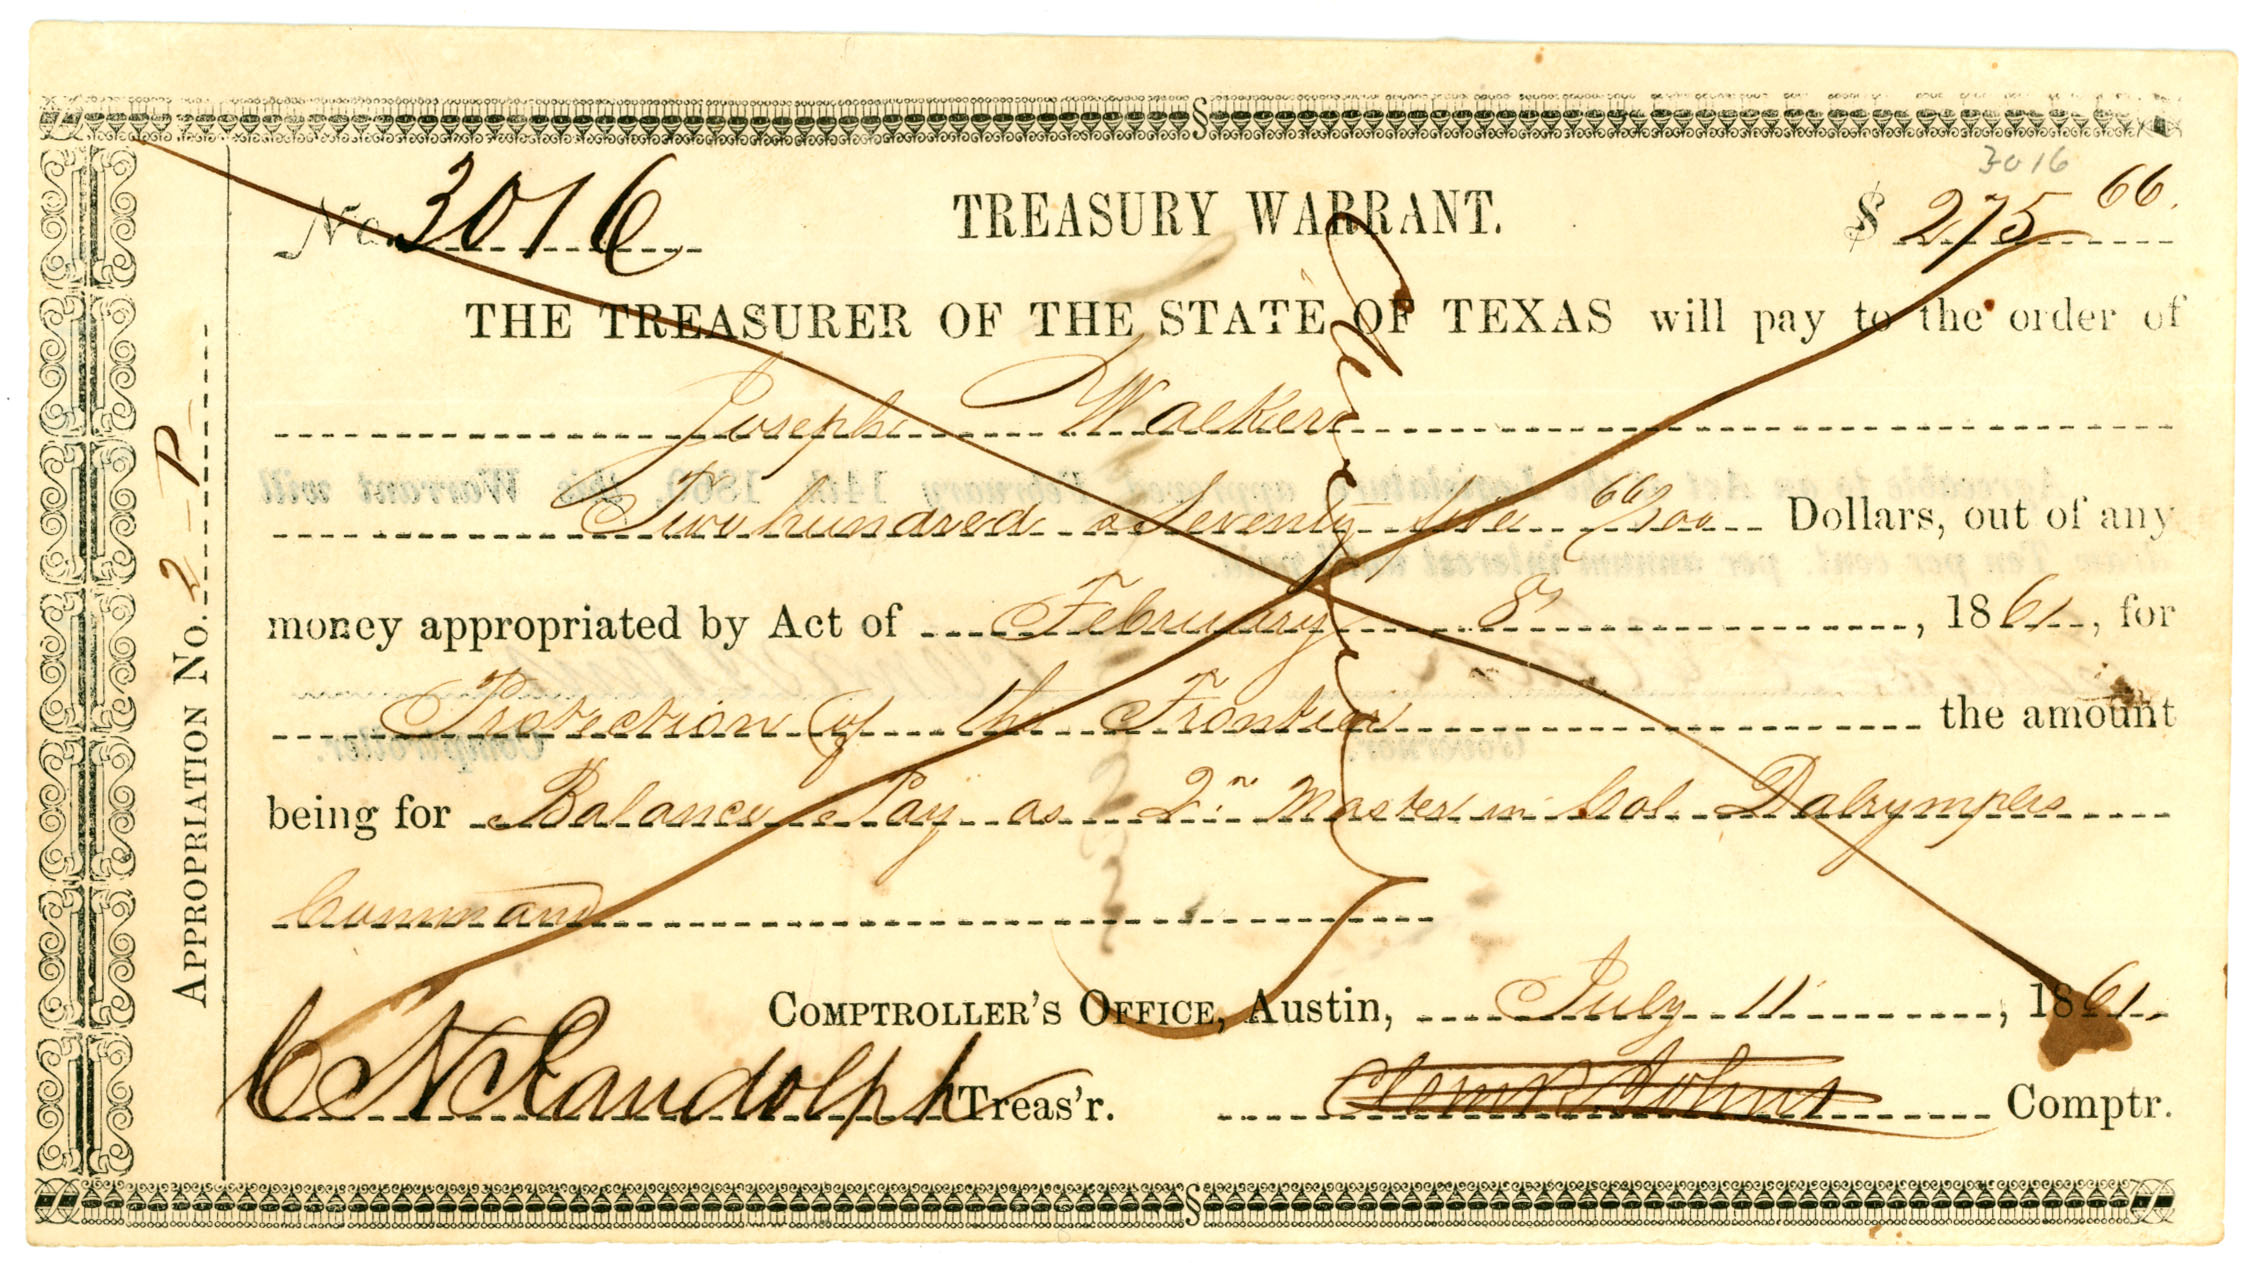 3016
No. 3016 TREASURY WARRANT. $ 275 66.
THE TREASURER OF THE STATE OF TEXAS will pay to the order of
Joseph Walker
Two hundred & Seventy five 66/100 Dollars, out of any
money appropriated by Act of February 8, 1861, for
Protection of the Frontier the amount
being for Balance Pay as 2r. Master in Col. Dalrymples
Command
COMPTROLLER'S OFFICE, Austin, July 11, 1861.
C H Randolph Treas'r. Clem R Johns Comptr.
APPROPRIATION No. 2 - P